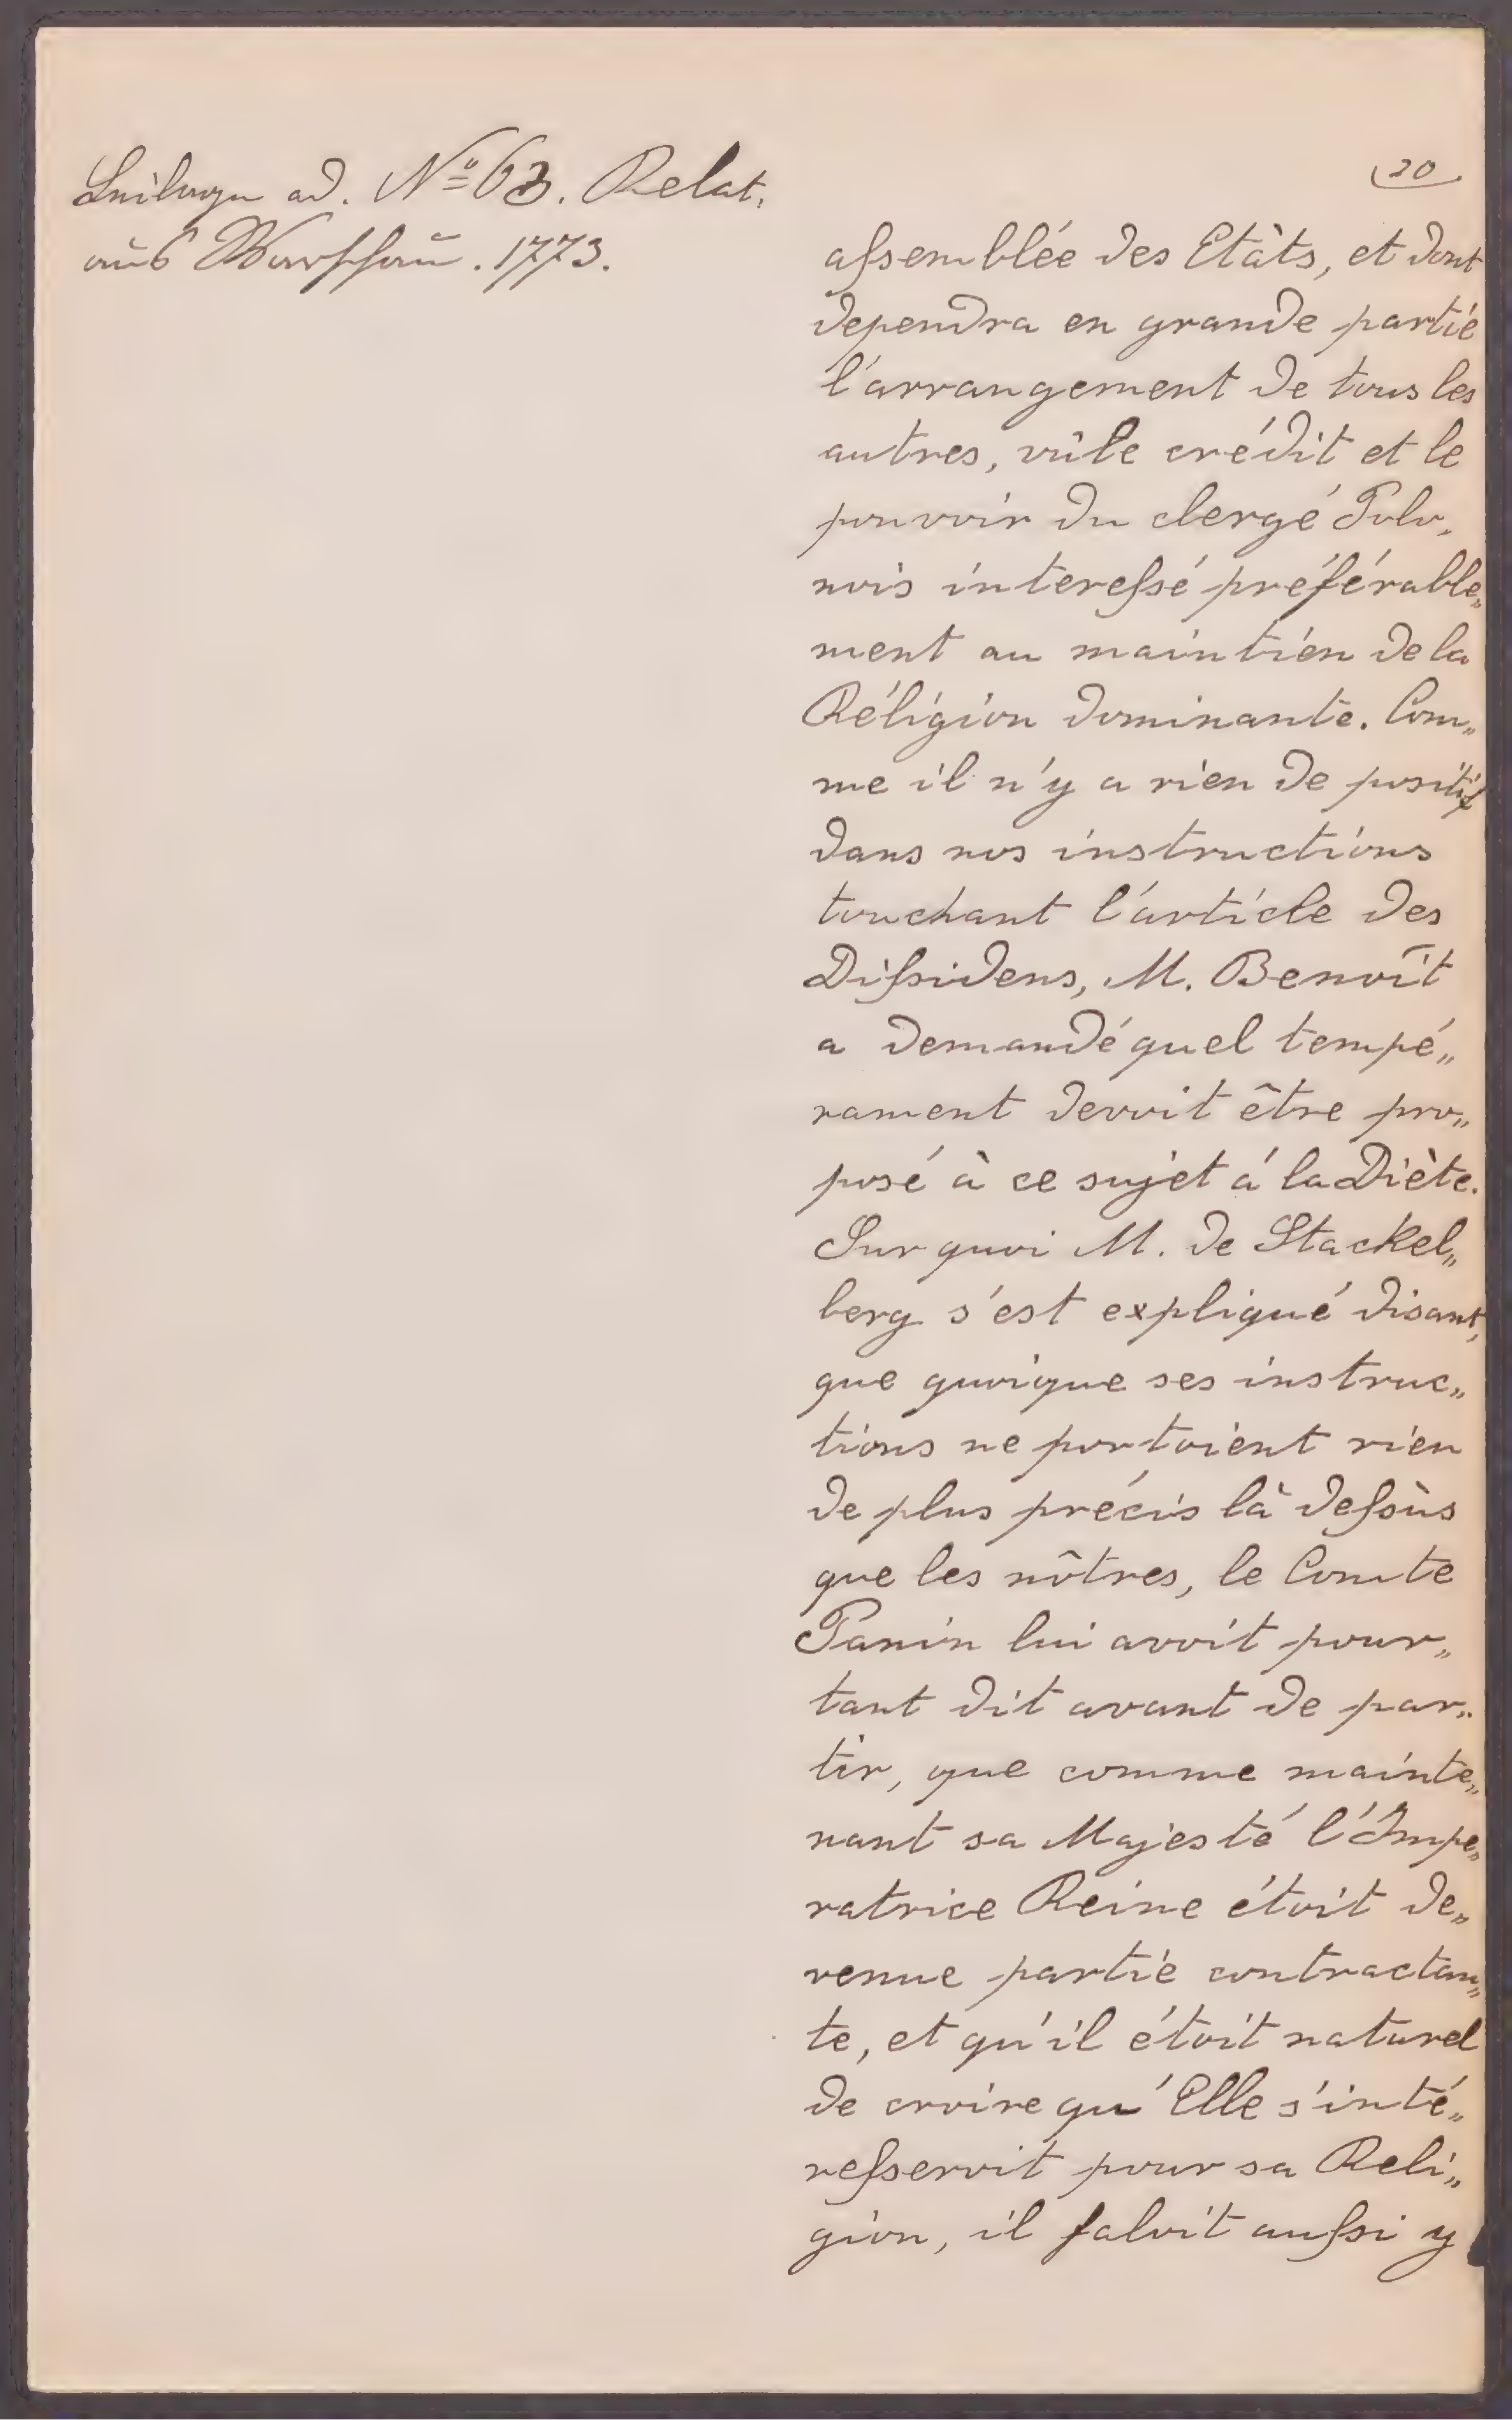 Beilage ad. No 63. Relat.
aus Warschau. 1773.
20
assemblée des Etàts, et dont
dependra en grande partie
l'arrangement de tous les
autres, vû le crédit et le
pouvoir du clergé Polo„
nois interessé préférable„
ment au maintien de la
Réligion dominante. Com„
me il n'y a rien de positif
dans nos instructions
touchant l'article des
Dissidens, M. Benoît
a demandé quel tempé„
rament devoit être pro„
posé à ce sujet á la Diète.
Sur quoi M. de Stackel„
berg s'est expliqué disant,
que quoique ses instruc„
tions ne portoient rien
de plus précis là dessùs
que les nôtres, le Comte
Panin lui avoit pour„
tant dit avant de par„
tir, que comme mainte„
nant sa Majesté l'Impe„
ratrice Reine étoit de„
venue partie contractan„
te, et qu'il étoit naturel
de croire qu'Elle s'inté„
resseroit pour sa Reli„
gion, il faloit aussi y